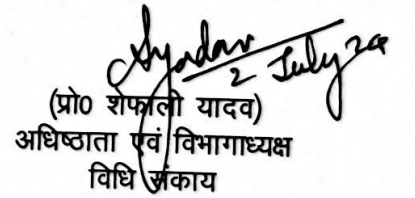 Syadav
2 July 24
(प्रो० शेफाली यादव)
अधिष्ठाता एवं विभागाध्यक्ष
विधि संकाय